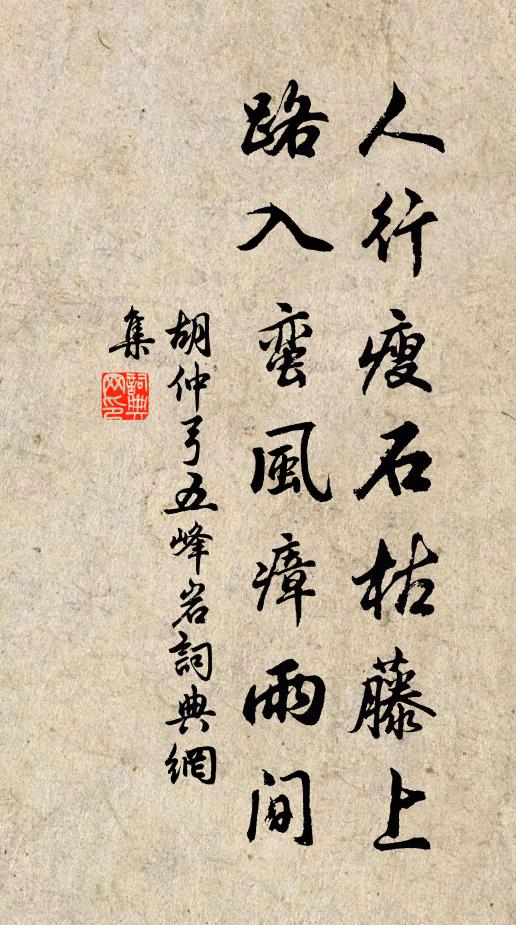 人行瘦石枯藤上
路入蛮風瘴雨間
胡仲弓五峰岩詞典網
集
詞典
网印